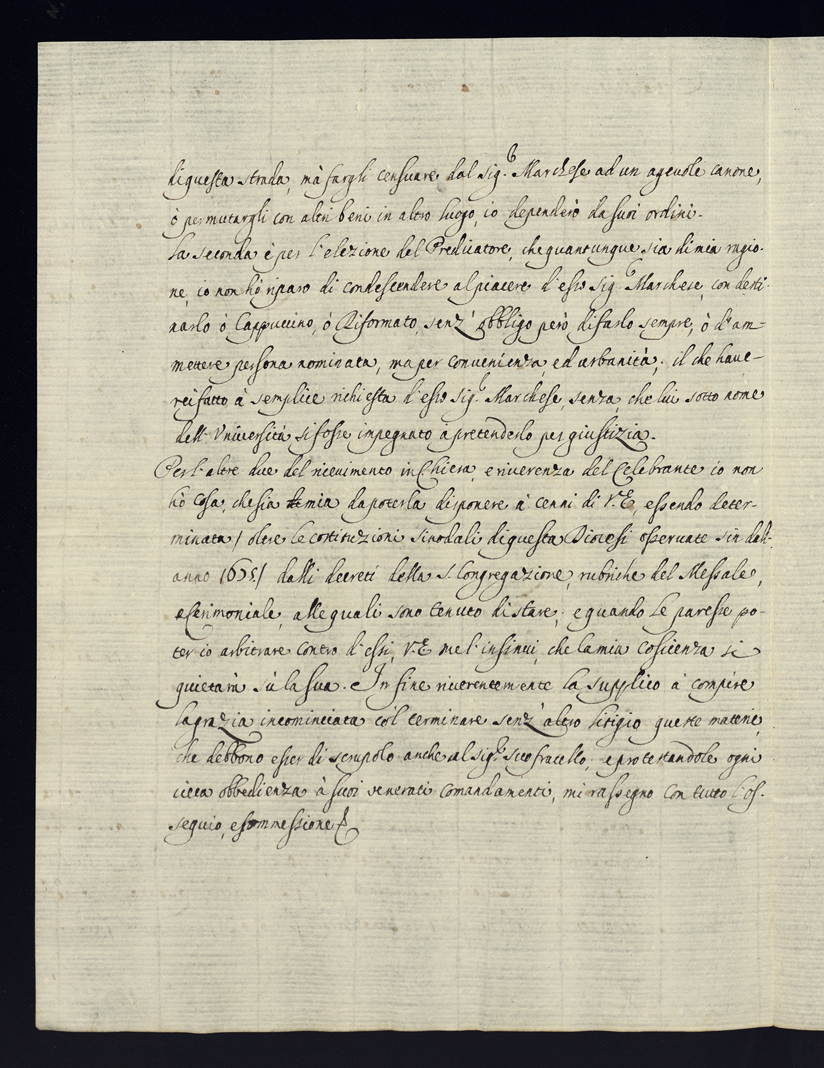 di questa strada, mà fargli censuare dal Sig.r Marchese ad un ageuole canone,
ò permutargli con altri beni in altro luogo, io dependerò da suoi ordini.
La seconda è per l'elezione del Predicatore, che quantunque sia di mia ragio-
ne, io non hò riparo di condescendere al piacere d'esso Sig.r Marchese, con desti-
narlo ò Cappuccino, ò Riformato, senz'obbligo però di farlo sempre, ò d'am-
mettere persona nominata, ma per conuenienza, ed urbanità; il che haue-
rei fatto à semplice richiesta d'esso Sig.r Marchese, senza, che lui sotto nome
dell'Vniuersità si fosse impegnato à pretenderlo per giustizia.
Per l'altre due del riceuimento in Chiesa, e riuerenza del Celebrante io non
hò cosa, che sia mia da poterla disponere à cenni di V.E., essendo deter-
minata / oltre le costituzioni sinodali di questa Diocesi osseruate sin dall'
anno 1695 / dalli decreti della S. Congregazione, rubriche del Messale,
e Cerimoniale, alle quali sono tenuto di stare; e quando le paresse po-
ter io arbitrare contro d'essi, V.E. me l'insinui, che la mia coscienza si
quietarà sù la sua. In fine riuerentemente la supplico à compire
la grazia incominciata co'l terminare senz'altro litigio queste materie,
che debbono esser di scrupolo anche al Sig.r suo fratello; e protestandole ogni
cieca obbedienza à suoi venerati comandamenti, mi rassegno con tutto l'os-
sequio, e sommessione